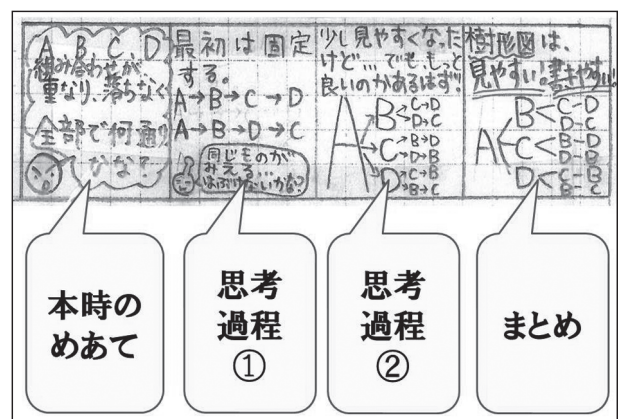 A B C D
組み合わせが、
重なり、落ちなく
全部で何通り
かな?
最初は固定
する。
A→B→C→D
A→B→D→C
同じものが
みえる…
はぶけないかな?
少し見やすくなった
けど…でも、もっと
良いのがあるはず!
A
B
C→D
D→C
C
B→D
D→B
D
C→B
B→C
樹形図は、
見やすい!書きやすい!
A
B
C-D
D-C
C
B-D
D-B
D
C-B
B-C
本時の
めあて
思考
過程
①
思考
過程
②
まとめ